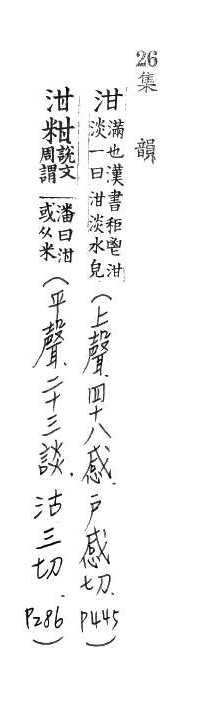 26 集韻
泔 滿也漢書秬鬯泔淡一曰泔淡水皃(上聲.四十八感.戶感切.P445)
泔粓 說文周謂潘曰泔或从米(平聲.二十三談.沽三切.P286)